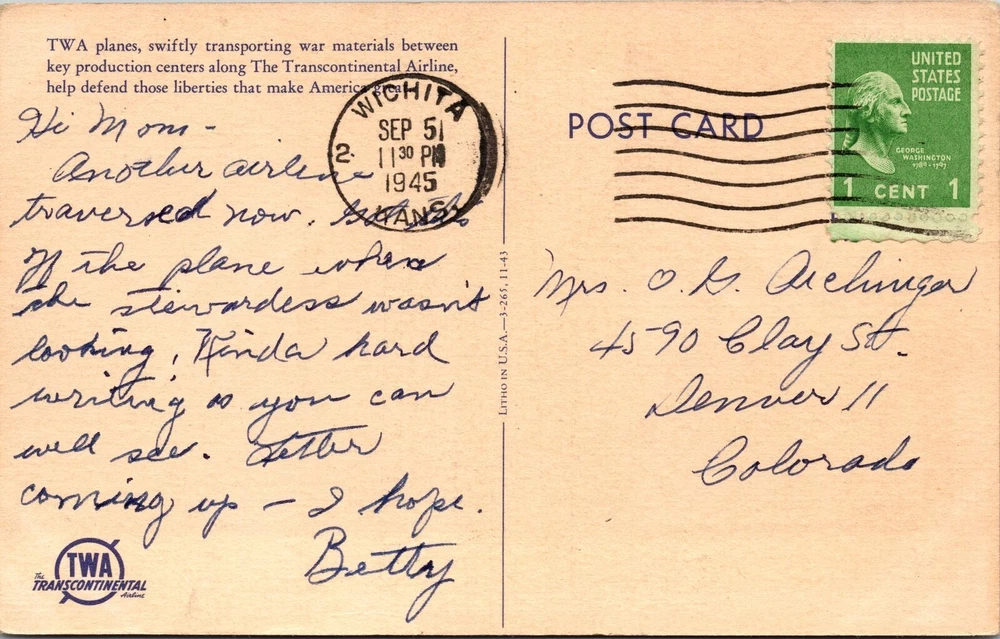 TWA planes, swiftly transporting war materials between
key production centers along The Transcontinental Airline,
help defend those liberties that make America great.
Hi Mom -
Another airline
traversed now.
If the plane when
the stewardess wasn't
looking. Kinda hard
writing as you can
well see. Letter
coming up - I hope.
Betty
The
TWA
TRANSCONTINENTAL
Airline
WICHITA
SEP 5
11 30 PM
1945
KANS.
2
LITHO IN U.S.A.—3-265, 11-43
POST CARD
UNITED
STATES
POSTAGE
GEORGE
WASHINGTON
1789-1797
1 CENT 1
Mrs. O. G.
4590 Clay St.
Denver 11
Colorado